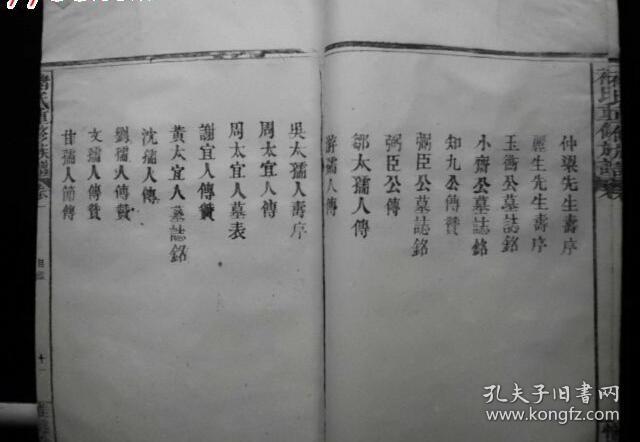 仲梁先生壽序
麗生先生壽序
玉衡公墓誌銘
小齋公墓誌銘
知九公傳贊
弼臣公墓誌銘
弼臣公傳
鄒太孺人傳
孺人傳
吳太孺人壽序
周太宜人傳
周太宜人墓表
謝宜人傳贊
黃太宜人墓誌銘
沈孺人傳
劉孺人傳贊
文孺人傳贊
甘孺人節傳
氏重修族譜
卷
十
孔夫子旧书网
www.kongfz.com